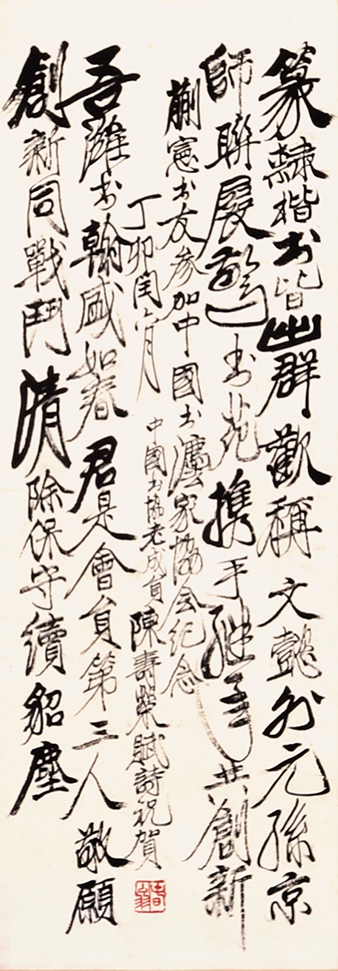 篆隸楷书皆出群歡稱文懿外元孫京
師聯展驚书苑攜手共創新
蒯憲书友參加中國书灋家協会纪念
丁卯閏六月 中國书協老成員陳壽榮賦詩祝賀
吾濰书翰盛如春君是會員第三人敬願
創新同戰鬥清除保守續貂塵